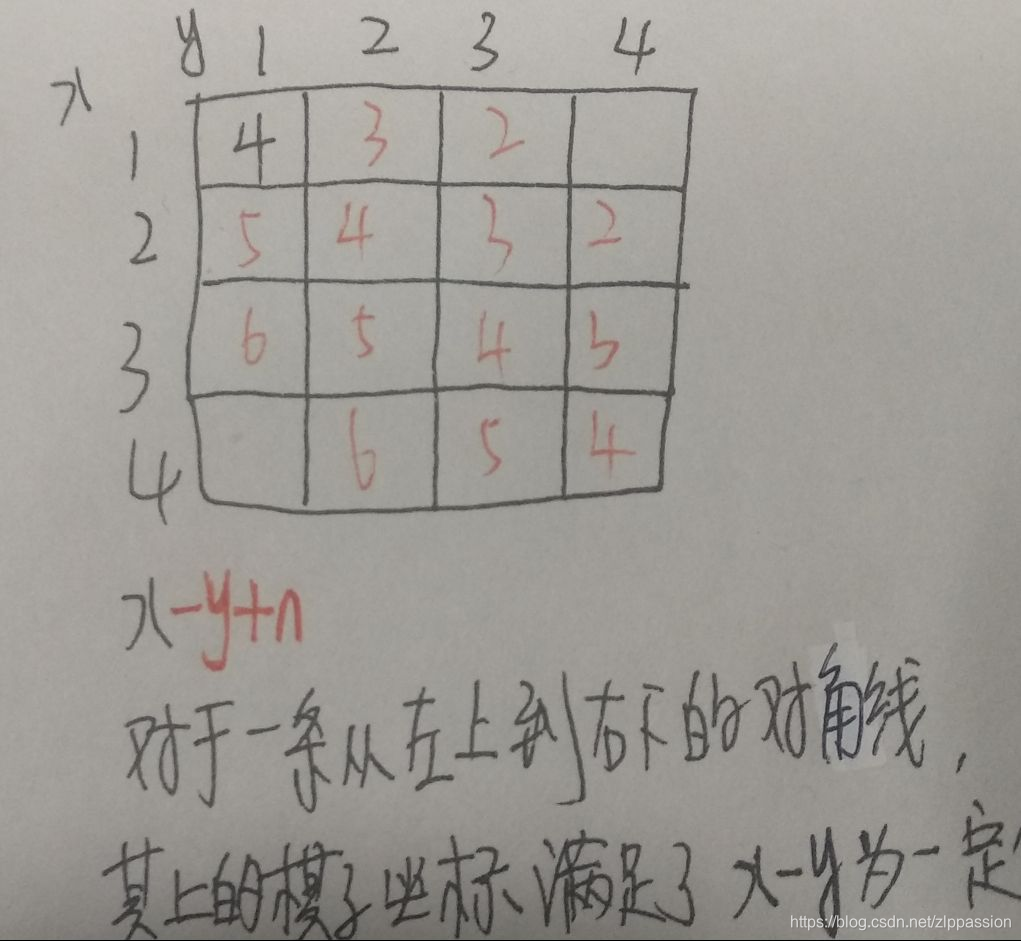 y 1 2 3 4
x
1 4 3 2
2 5 4 3 2
3 6 5 4 3
4 6 5 4
x-y+n
对于一条从左上到右下的对角线,
其上的棋子坐标满足了 x-y为一定
https://blog.csdn.net/zlppassion